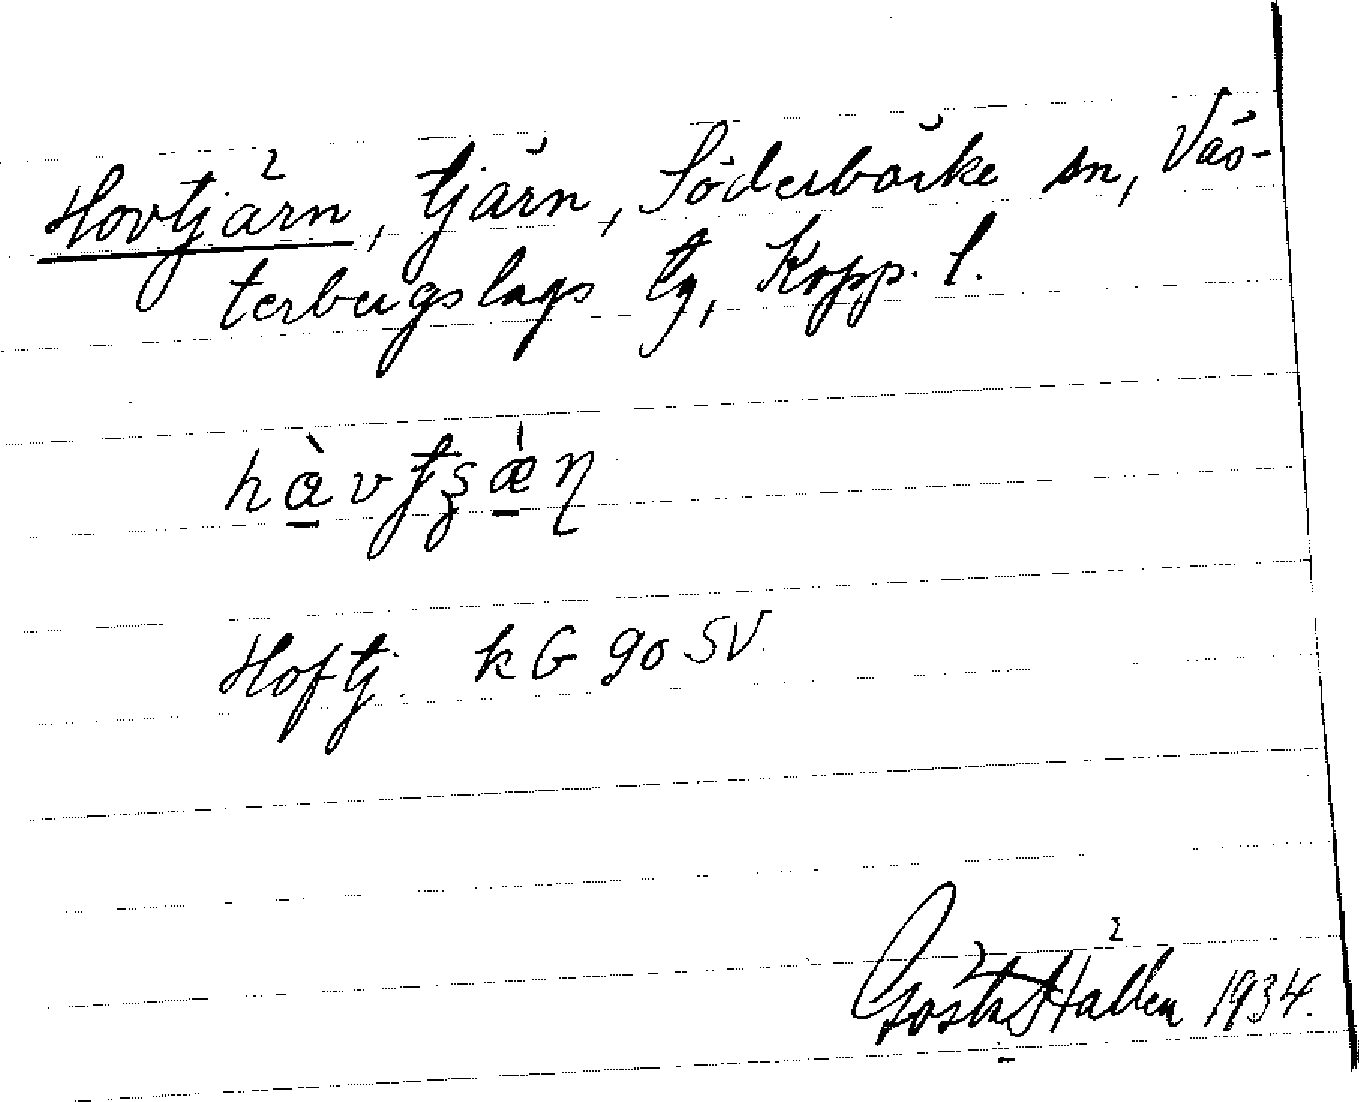 Hovtjärn, tjärn, Söderbärke sn, Väs-
terbergslags tg, Kopp. l.
Hoftj. kG 90 SV.
Gösta Hallén 1934.